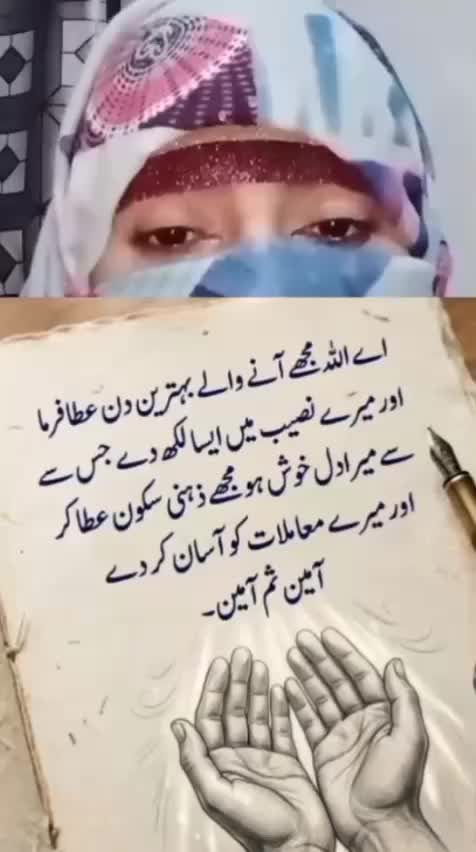 اے اللہ مجھے آنے والے بہترین دن عطا فرما
اور میرے نصیب میں ایسا لکھ دے جس سے
سے میرا دل خوش ہو مجھے ذہنی سکون عطا کر
اور میرے معاملات کو آسان کر دے
آمین ثم آمین۔